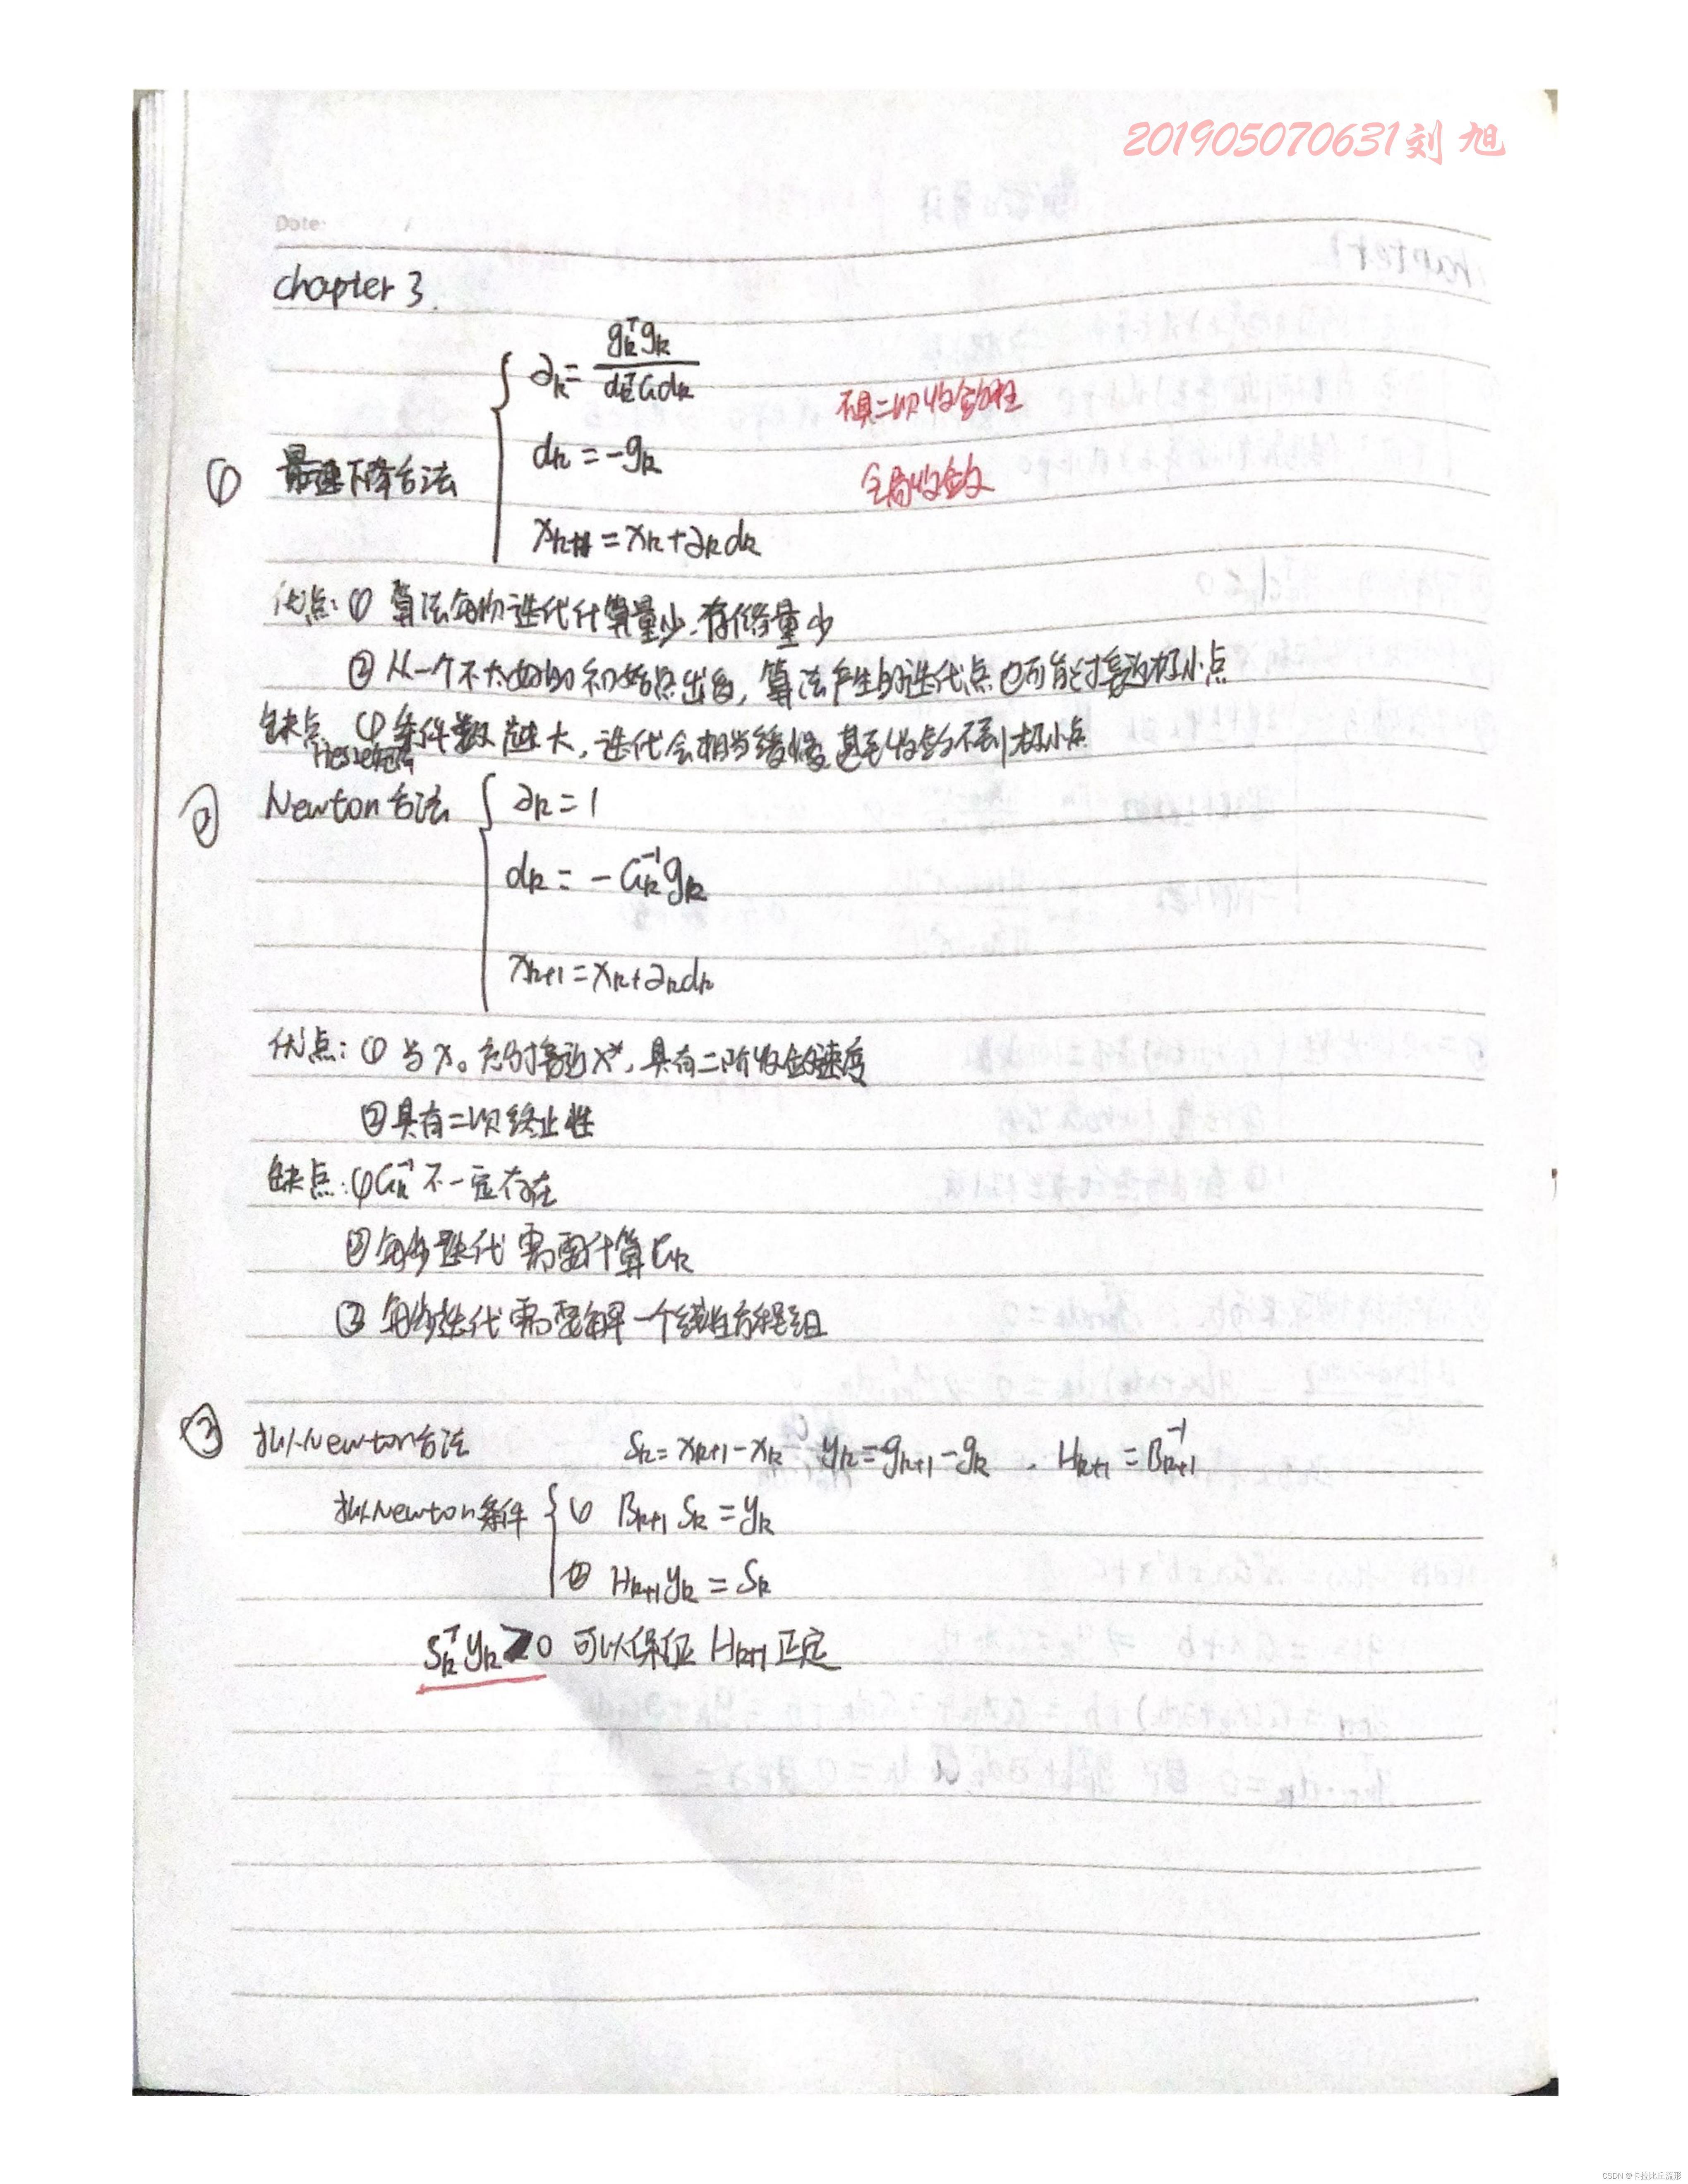 201905070631刘旭
Date:
chapter 3.
① 最速下降方法
∂k = gkᵀgk / dkᵀGdk
不具二次收敛性
dk = -gk
全局收敛
xk+1 = xk + ∂kdk
优点: ① 算法每次迭代计算量少.存储量少
② 从一个不太好的初始点出发, 算法产生的迭代点也可能会接近极小点
缺点 ① 条件数越大, 迭代会相当缓慢, 甚至收敛不到极小点
② Newton方法
∂k = 1
dk = -Gk⁻¹gk
xk+1 = xk + ∂kdk
优点: ① 当x₀充分接近x*, 具有二阶收敛速度
② 具有二次终止性
缺点: ① Gk⁻¹ 不一定存在
② 每步迭代需要计算Gk
③ 每步迭代需要解一个线性方程组
③ 拟Newton方法 Sk = xk+1 - xk yk = gk+1 - gk . Hk+1 = Bk+1⁻¹
拟Newton条件 ① Bk+1 Sk = yk
② Hk+1 yk = Sk
Skᵀyk > 0 可以保证 Hk+1 正定
CSDN @卡拉比丘流形